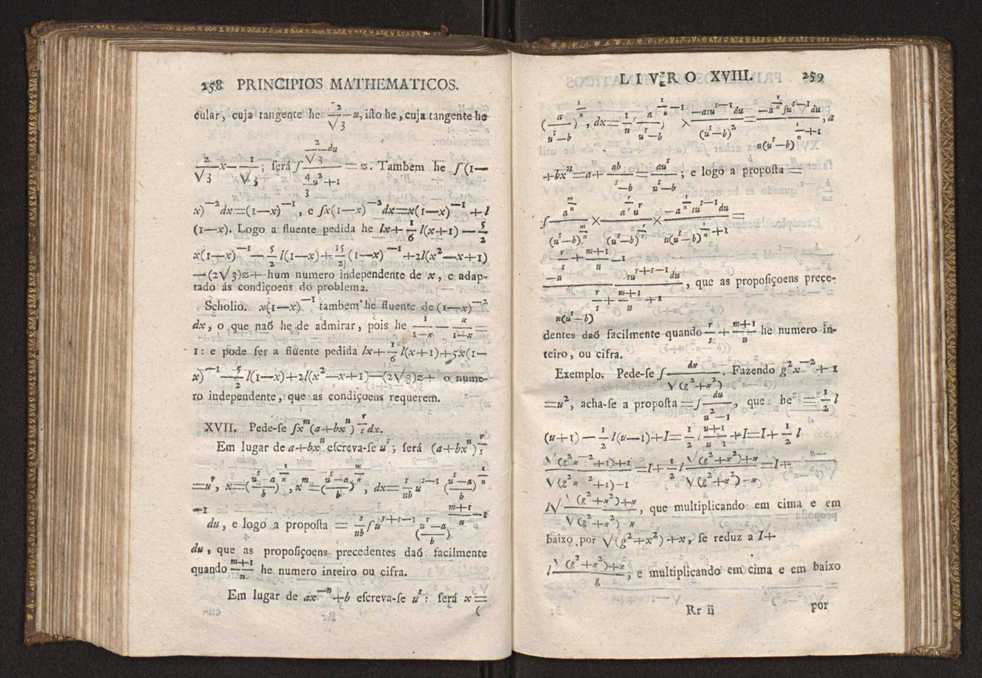 258 PRINCIPIOS MATHEMATICOS.
cular, cuja tangente he 2/√3 u, isto he, cuja tangente he
2/√3 x — 1/√3; será ∫ (2/√3 du)/(4/3 u² + 1) = z. Tambem he ∫(1—
x)⁻²dx=(1—x)⁻¹, e ∫x(1—x)⁻²dx=x(1—x)⁻¹+l
(1—x). Logo a fluente pedida he lx+1/6 l(x+1)—5/2
x(1—x)⁻¹—5/2 l(1—x)+15/2(1—x)⁻¹+2l(x²—x+1)
—(2√3)z+ hum numero independente de x, e adap-
tado ás condiçoens do problema.
Scholio. x(1—x)⁻¹ tambem he fluente de (1—x)⁻²
dx, o que naõ he de admirar, pois he 1/(1—x) — x/(1—x) =
1: e pode ser a fluente pedida lx+1/6 l(x+1)+5x(1—
x)⁻¹—5/2 l(1—x)+2l(x²—x+1)—(2√3)z+ o nume-
ro independente, que as condiçoens requerem.
XVII. Pede-se ∫xᵐ(a+bxⁿ)^(r/s) dx.
Em lugar de a+bxⁿ escreva-se uˢ; será (a+bxⁿ)^(r/s)
=uʳ, x=((uˢ—a)/b)^(1/n), xᵐ=((uˢ—a)/b)^(m/n), dx= s/(nb) uˢ⁻¹ ((uˢ—a)/b)^(1/n
—1)
du, e logo a proposta = s/(nb) ∫u^(r+s—1) ((uˢ—a)/b)^((m+1)/n —1)
du, que as proposiçoens precedentes daõ facilmente
quando (m+1)/n he numero inteiro ou cifra.
Em lugar de ax⁻ⁿ+b escreva-se uˢ: será x=
(
LIVRO XVIII. 259
(a/(uˢ—b))^(1/n), dx= 1/n (a/(uˢ—b))^(1/n —1) × —asuˢ⁻¹du/(uˢ—b)² = —a^(1/n) suˢ⁻¹du / n(uˢ—b)^(1/n +1), a
+bxⁿ=a+ ab/(uˢ—b) = auˢ/(uˢ—b); e logo a proposta =
∫ a^(m/n)/(uˢ—b)^(m/n) × a^(r/s) uʳ/(uˢ—b)^(r/s) × —a^(1/n) suˢ⁻¹du / n(uˢ—b)^(1/n +1) =
—a^(r/s + (m+1)/n) su^(r+s—1) du / n(uˢ—b)^(r/s + (m+1)/n +1), que as proposiçoens prece-
dentes daõ facilmente quando r/s + (m+1)/n he numero in-
teiro, ou cifra.
Exemplo. Pede-se ∫ dx/√(g²+x²). Fazendo g²x⁻²+1
=u², acha-se a proposta =∫ —du/(u²—1), que he = 1/2 l
(u+1)— 1/2 l(u—1)+I= 1/2 l (u+1)/(u—1) +I=I+ 1/2 l
(√(g²x⁻²+1)+1)/(√(g²x⁻²+1)—1) =I+ 1/2 l (√(g²+x²)+x)/(√(g²+x²)—x) =I+
l√ (√(g²+x²)+x)/(√(g²+x²)—x), que multiplicando em cima e em
baixo por √(g²+x²)+x, se reduz a I+
l (√(g²+x²)+x)/g, e multiplicando em cima e em baixo
Rr ii por